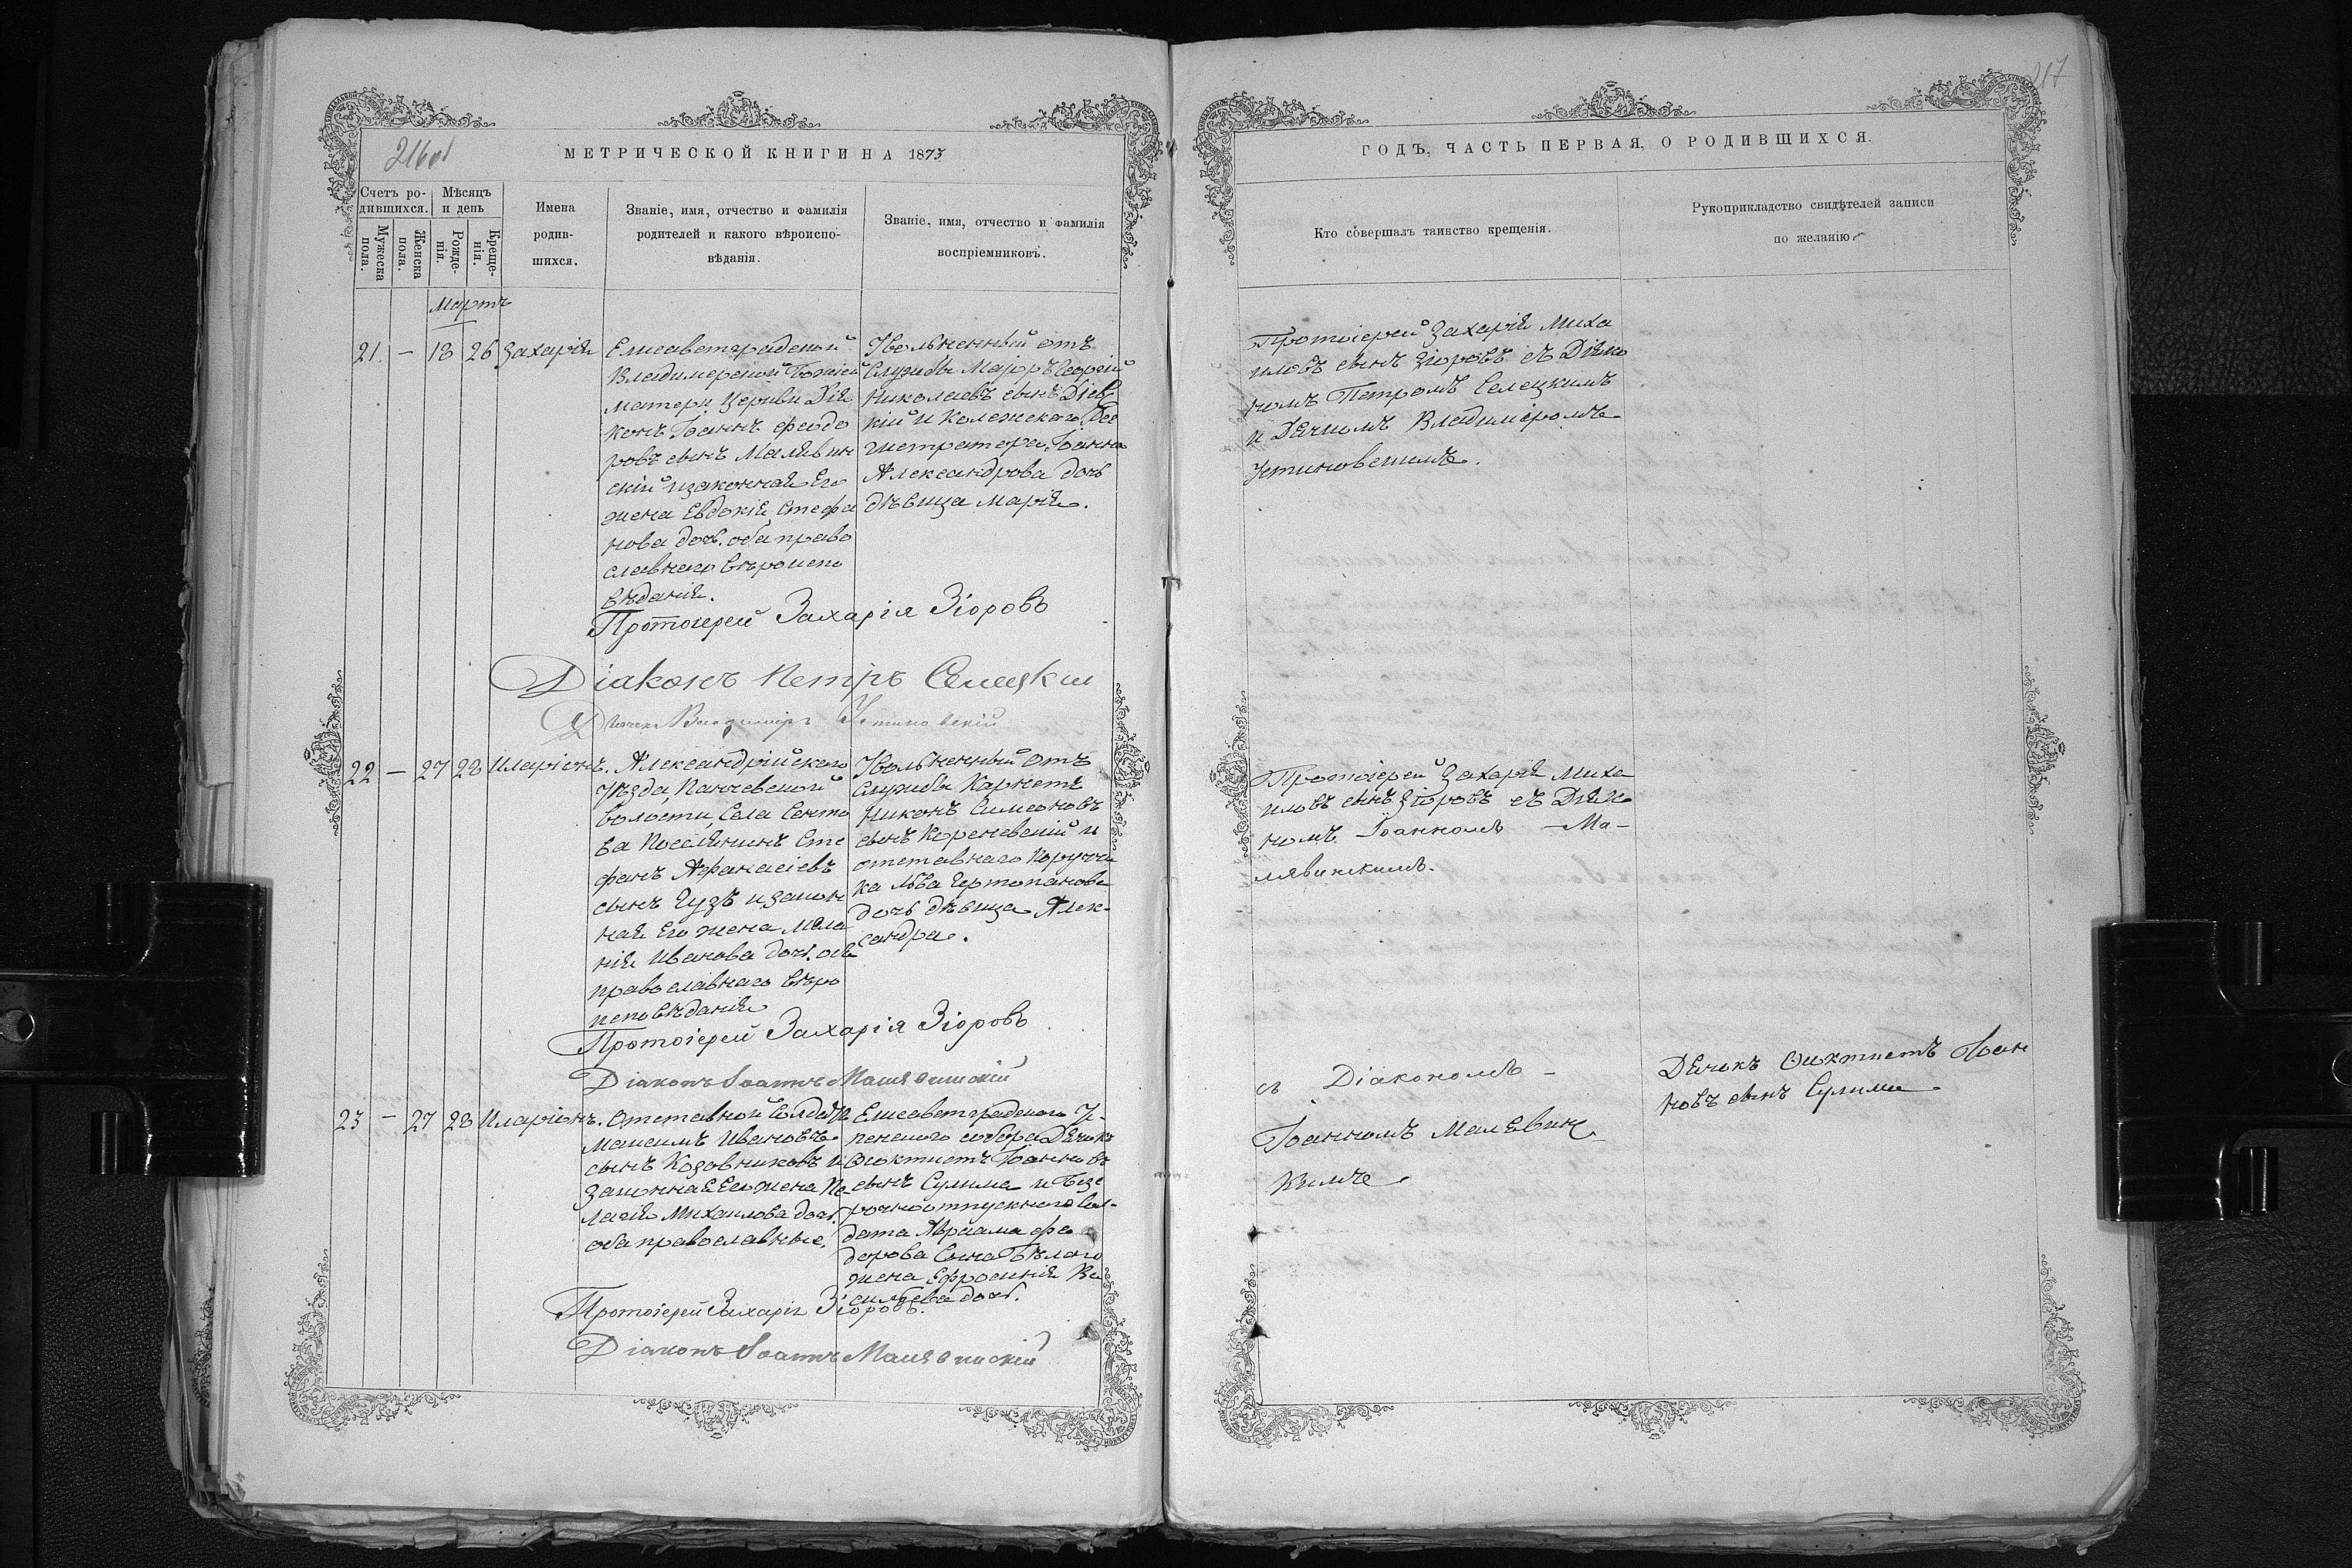 216об
МЕТРИЧЕСКОЙ КНИГИ НА 1873
Счетъ ро-
дившихся.
Мѣсяцъ
и день
Мужеска
пола.
Женска
пола.
Рожде-
нія.
Креще-
нія.
Имена
родив-
шихся.
Званіе, имя, отчество и фамилія
родителей и какого вѣроиспо-
вѣданія.
Званіе, имя, отчество и фамилія
воспріемниковъ.
Мартъ
21. — 18 26 Захарія
Елисаветградской
Владимірской Божіей
Матери Церкви Дія
конъ Іоаннъ Феодо
ровъ сынъ Малявин
скій и законная Его
жена Евдокія Стефа
нова дочь. оба право
славнаго вѣроиспо
вѣданія.
Уволенный отъ
Службы Маіоръ Георгій
Николаевъ сынъ
и Колежскаго Рее
гистратора Іоанна
Александрова дочь
дѣвица Марія.
Протоіерей Захарія Зіоровъ
Діаконъ Петръ Селецкій
Дьячекъ Владиміръ Устиновскій
22 — 27 28 Иларіонъ.
Александрійскаго
Уѣзда, Панчевской
волости, Села Сенто
ва Поселянинъ Сте
фанъ Афанасіевъ
сынъ Гузъ и закон
ная Его жена Мела
нія Иванова дочь. оба
православнаго вѣро
исповѣданія
Уволенный отъ
службы Карнетъ
Никонъ Симеоновъ
сынъ Кореневскій и
отставнаго Поручи
ка Льва Чертопанова
дочь дѣвица Алек-
сандра.
Протоіерей Захарія Зіоровъ
Діаконъ Іоаннъ Малявинскій
23 — 27 28 Иларіонъ.
Отставной Солдатъ
Максимъ Ивановъ
сынъ Козовниковъ и
законная Его жена Пе-
лагія Михаилова дочь.
оба православные.
Елисаветградскаго У-
пенского собора Дячокъ
Феоктистъ Іоанновъ
сынъ Сулима и Безс
рочноотпускного Сол-
дата Авраама Фе
дорова Сына Бѣлаго
жена Ефросинія Ва
сильева дочь.
Протоіерей Захарія Зіоровъ.
Діаконъ Іоаннъ Малявинскій
217
ГОДЪ, ЧАСТЬ ПЕРВАЯ, О РОДИВШИХСЯ.
Кто совершалъ таинство крещенія.
Рукоприкладство свидѣтелей записи
по желанію.
Протоіерей Захарія Миха
иловъ сынъ Зіоровъ съ Діяко
номъ Петромъ Селецкимъ
и Дячкомъ Владиміромъ
Устиновскимъ.
Протоіерей Захарія Миха
иловъ сынъ Зіоровъ съ Діяко
номъ Іоанномъ Ма-
лявинскимъ.
съ Діакономъ —
Іоанномъ Малявинс
кимъ.
Дячокъ Фиктистъ Иван
новъ сынъ Сулима